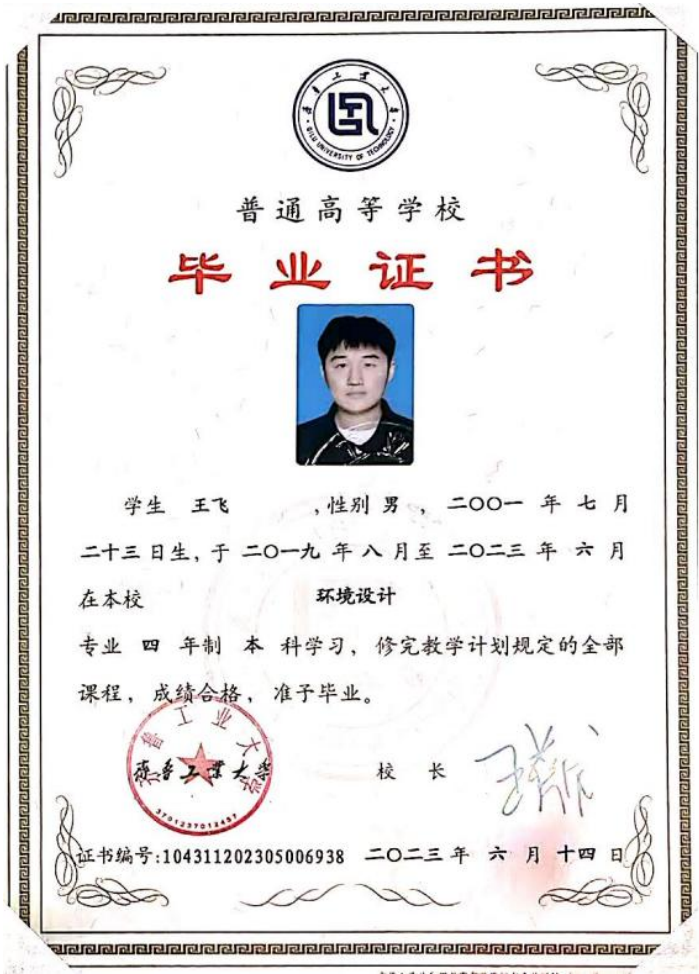 齐鲁工业大学
QILU UNIVERSITY OF TECHNOLOGY
普通高等学校
毕业证书
学生 王飞 ,性别 男 , 二〇〇一 年 七 月
二十三 日生, 于 二〇一九 年 八 月至 二〇二三 年 六 月
在本校 环境设计
专业 四 年制 本 科学习, 修完教学计划规定的全部
课程, 成绩合格, 准予毕业。
齐鲁工业大学
齐鲁工业大学
校 长
3701237012457
证书编号:104311202305006938 二〇二三 年 六 月 十四 日